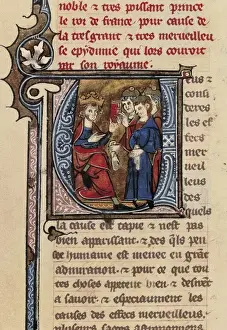 noble & tres poissant prince
le roi de france pour cause de
la tresgrant & tres merveilleu
se epydimie qui lors couroit
par son royaume.
Veus &
conside
res les ef
fecs mer
veilleus
des
quels
la cause est tapie & nest pas
bien apparissant & des q̄ls pen
see humaine est menee en grāt
admiration & pour ce que tout
choses apetent bien & desirēt
a savoir & especiaument les
causes des effecs merveilleus
plusieurs sages astronomiens